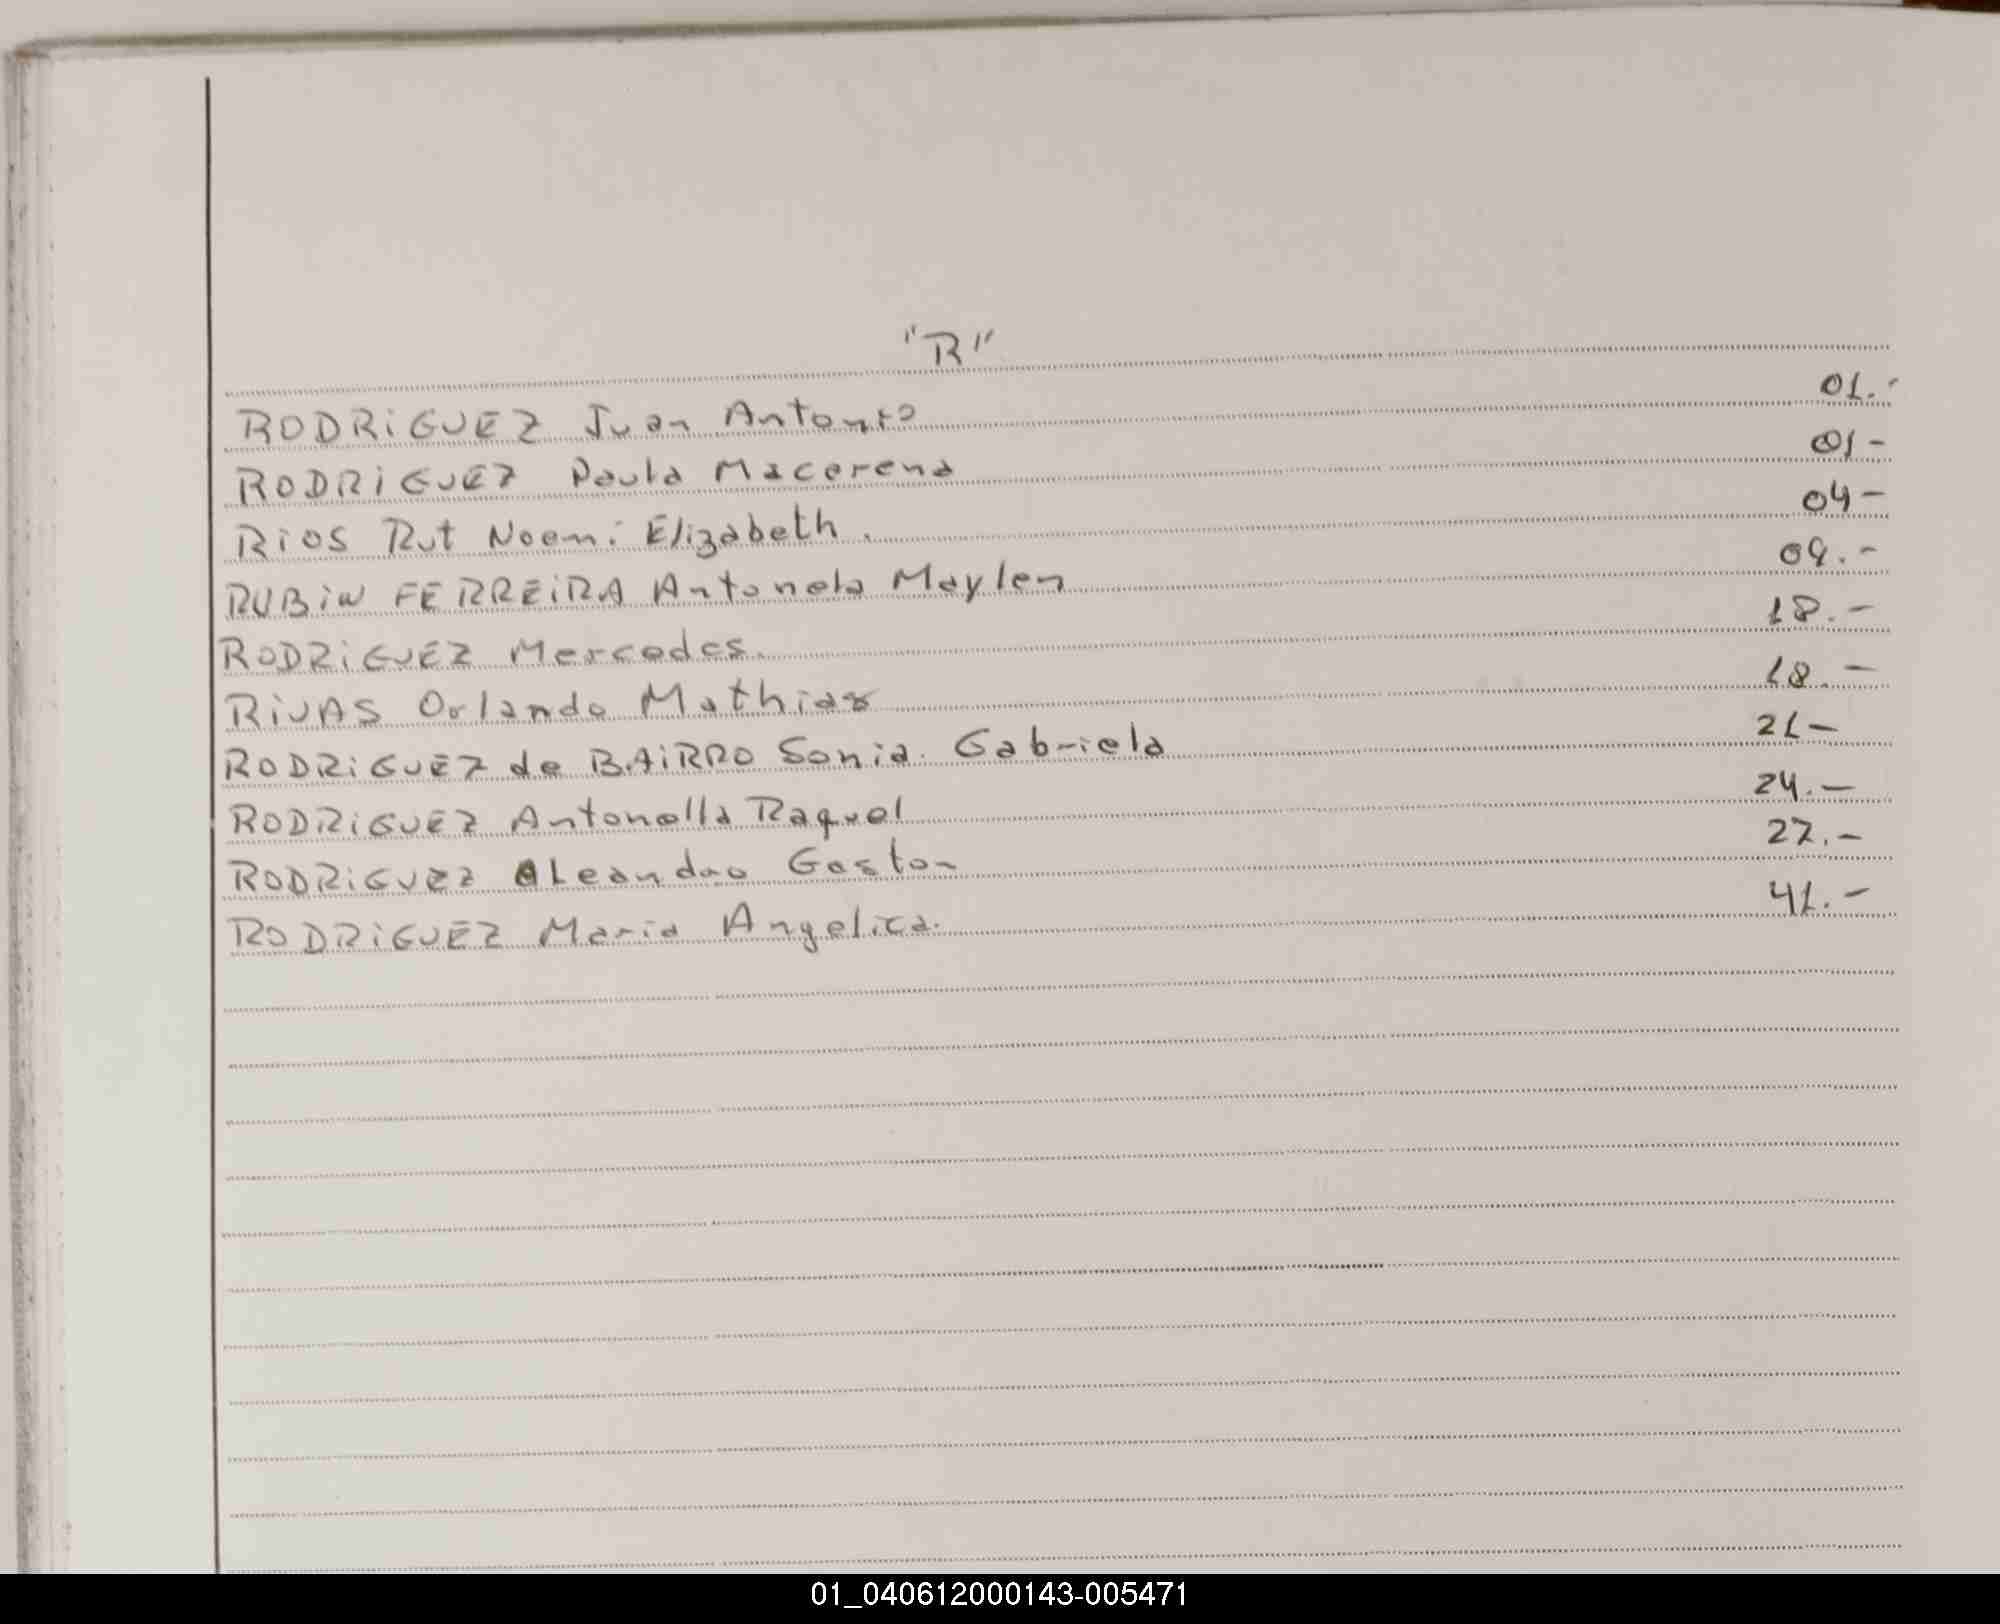 "R"
RODRIGUEZ Juan Antonio 01.-
RODRIGUEZ Paula Macarena 01-
RIOS Rut Noemi Elizabeth. 04-
RUBIN FERREIRA Antonela Maylen 09.-
RODRIGUEZ Mercedes. 18.-
RIVAS Orlando Mathias 18.-
RODRIGUEZ de BAIRRO Sonia Gabriela 21-
RODRIGUEZ Antonella Raquel 24.-
RODRIGUEZ Leandro Gaston 27.-
RODRIGUEZ Maria Angelica. 41.-
01_040612000143-005471